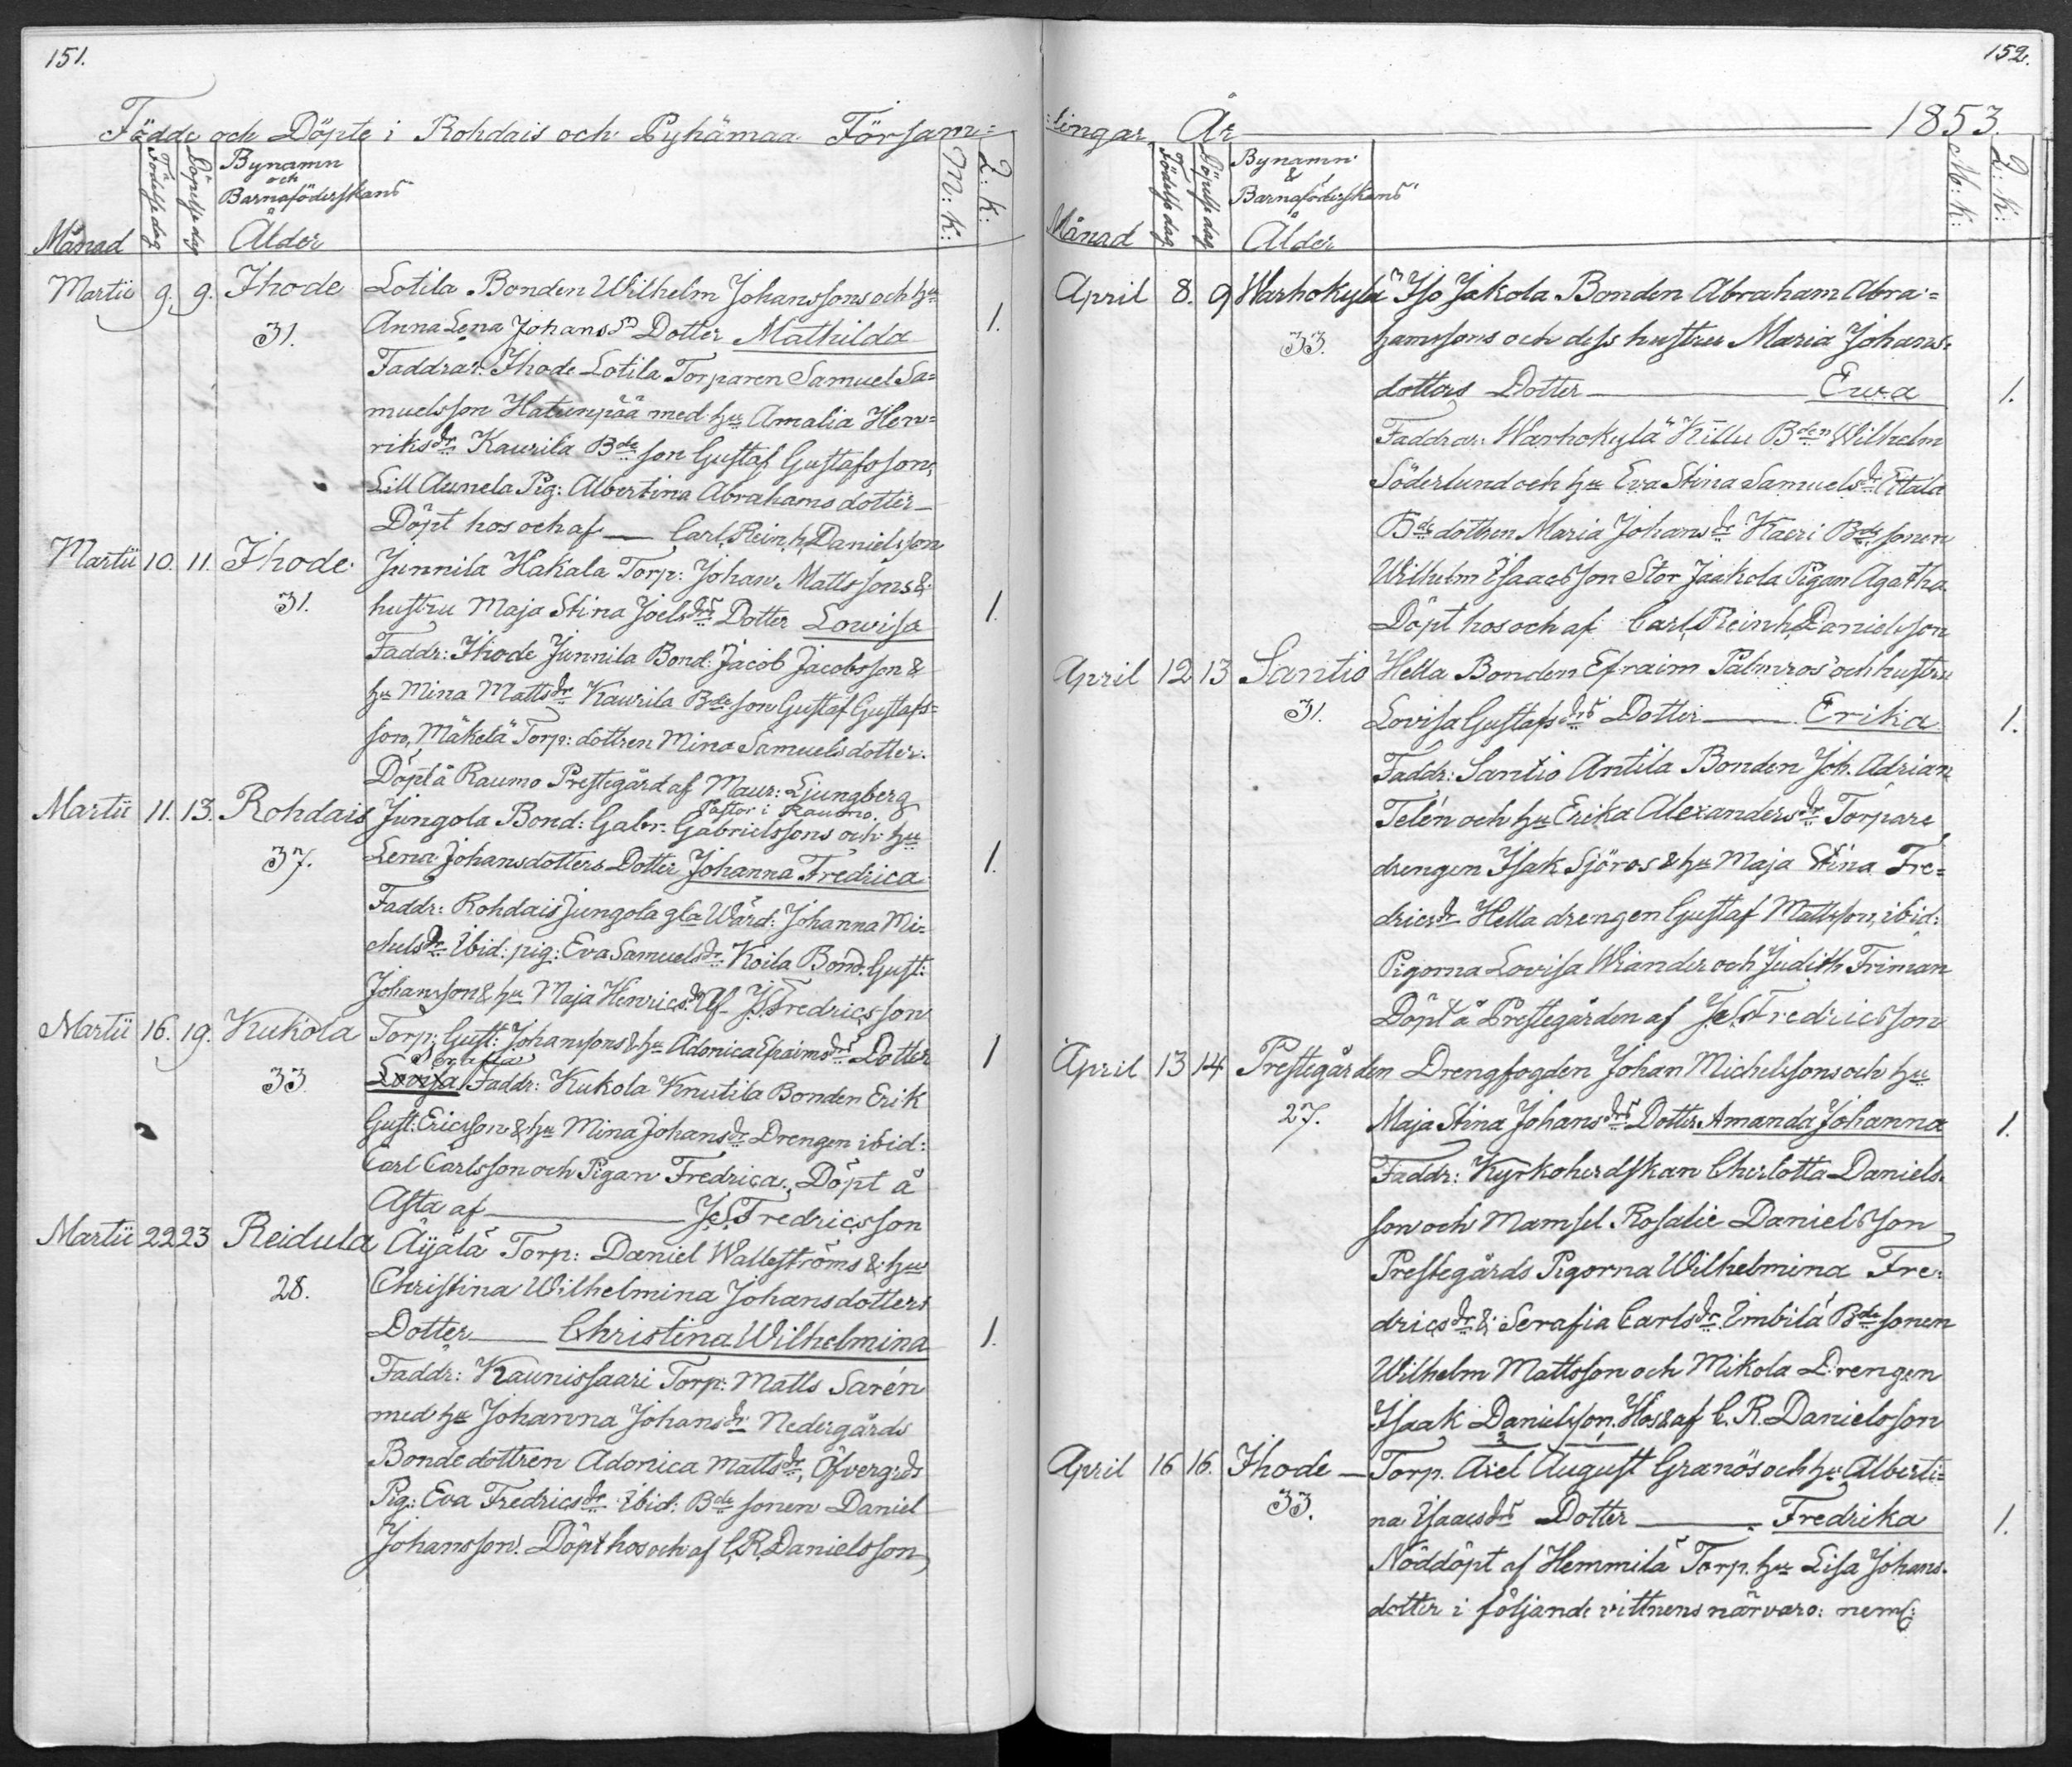 151.
Födde och Döpte i Rohdais och Pyhämaa Försam=
Månad
Födelsedag
Döpelse dag
Bynamn
och
Barnaföderskans
Ålder
M: K:
Q: K:
Martii 9. 9. Ihode Lotila Bonden Wilhelm Johanssons och hu
31. Anna Lena Johans Dotter Mathilda 1.
Faddrar: Ihode Lotila Torparen Samuel Sa=
muelsson Hatunpää med hu Amalia Hen=
riksdr Kaurila Bde son Gustaf Gustafsson,
Lill Aunela Pig: Albertina Abrahamsdotter
Döpt hos och af — Carl Reinh Danielsson
Martii 10. 11. Ihode Junnila Hakala Torp: Johan Mattssons &
31. hustru Maja Stina Joelsdrs Dotter Lowisa 1.
Faddr: Ihode Junnila Bond: Jacob Jacobsson &
hu Mina Mattsdr Kaurila Bde son Gustaf Gustafs=
son, Mäkelä Torp: dottren Mina Samuelsdotter.
Döpt å Raumo Prestegård af Maur: Ljungberg
Pastor i Raumo.
Martii 11. 13. Rohdais Jungola Bond: Gabr. Gabrielssons och hu
37. Lena Johansdotters Dotter Johanna Fredrica 1.
Faddr: Rohdais Jungola gla Wärd: Johanna Mi=
chelsdr Ibid: pig: Eva Samuelsdr Koila Bond. Gust:
Johansson & hu Maja Henricsdr Af J. Fredricsson
Martii 16. 19. Kukola Torp: Gust: Johanssons & hu Adonica Efraimsdrs Dotter 1
33 Lovisa Faddr: Kukola Knutila Bonden Erik
Gust: Ericsson & hu Mina Johansdr Drengen ibid:
Carl Carlsson och Pigan Fredrica. Döpt å
Asta af — Fredricsson
Martii 22 23 Reidula Äyälä Torp: Daniel Walleströms & hu
28. Christina Wilhelmina Johansdotters
Dotter — Christina Wilhelmina 1.
Faddr: Kaunissaari Torp: Matts Sarén
med hu Johanna Johansdr Nedergårds
Bondedottren Adonica Mattsdr, Öfvergrds
Pig: Eva Fredricsdr Ibid: Bde sonen Daniel
Johansson. Döpt hos och af C. R. Danielsson,
152.
:lingar År — 1853.
Månad
Födelse dag
Döpelse dag
Bynamn
&
Barnaföderskans
Ålder
M: K:
Q: K:
April 8. 9 Warhokylä Iso Jakola Bonden Abraham Abra=
33. hamssons och dess hustru Maria Johans=
dotters Dotter — Ewa 1.
Faddrar: Warhokylä Killu Bden Wilhelm
Söderlund och hu Eva Stina Samuelsdr Eitala
Bde dottren Maria Johansdr Kaeri Bde sonen
Wilhelm Isaacsson Stor Jaakola Pigan Agatha
Döpt hos och af Carl Reinh Danielsson
April 12 13 Santio Hella Bonden Efraim Palmros och hustru
31. Lovisa Gustafsdrs Dotter — Erika 1.
Faddr: Santio Antila Bonden Joh. Adrian
Telén och hu Erika Alexandersdr Torpare
drengen Isak Sjöros & hu Maja Stina Fre=
dricsdr Hella drengen Gustaf Mattsson, ibid:
Pigorna Lovisa Wiander och Judith Friman
Döpt å Prestegården af Fredricsson
April 13 14 Prestegården Drengfogden Johan Michelssons och hu
27. Maja Stina Johansdrs Dotter Amanda Johanna 1.
Faddr: Kyrkoherdskan Cherlotta Daniels=
son och Mamsel Rosalie Danielsson
Prestegårds Pigorna Wilhelmina Fre=
dricsdr & Serafia Carlsdr Embilä Bde sonen
Wilhelm Mattsson och Mikola Drengen
Isaak Danielsson. Hos & af C. R. Danielsson
April 16 16. Ihode — Torp. Axel August Granös och hu Alberti=
33. na Isaacsdrs Dotter — Fredrika 1.
Nöddöpt af Hemmilä Torp. hu Lisa Johans=
dotter i följande vittnens närvaro: neml: